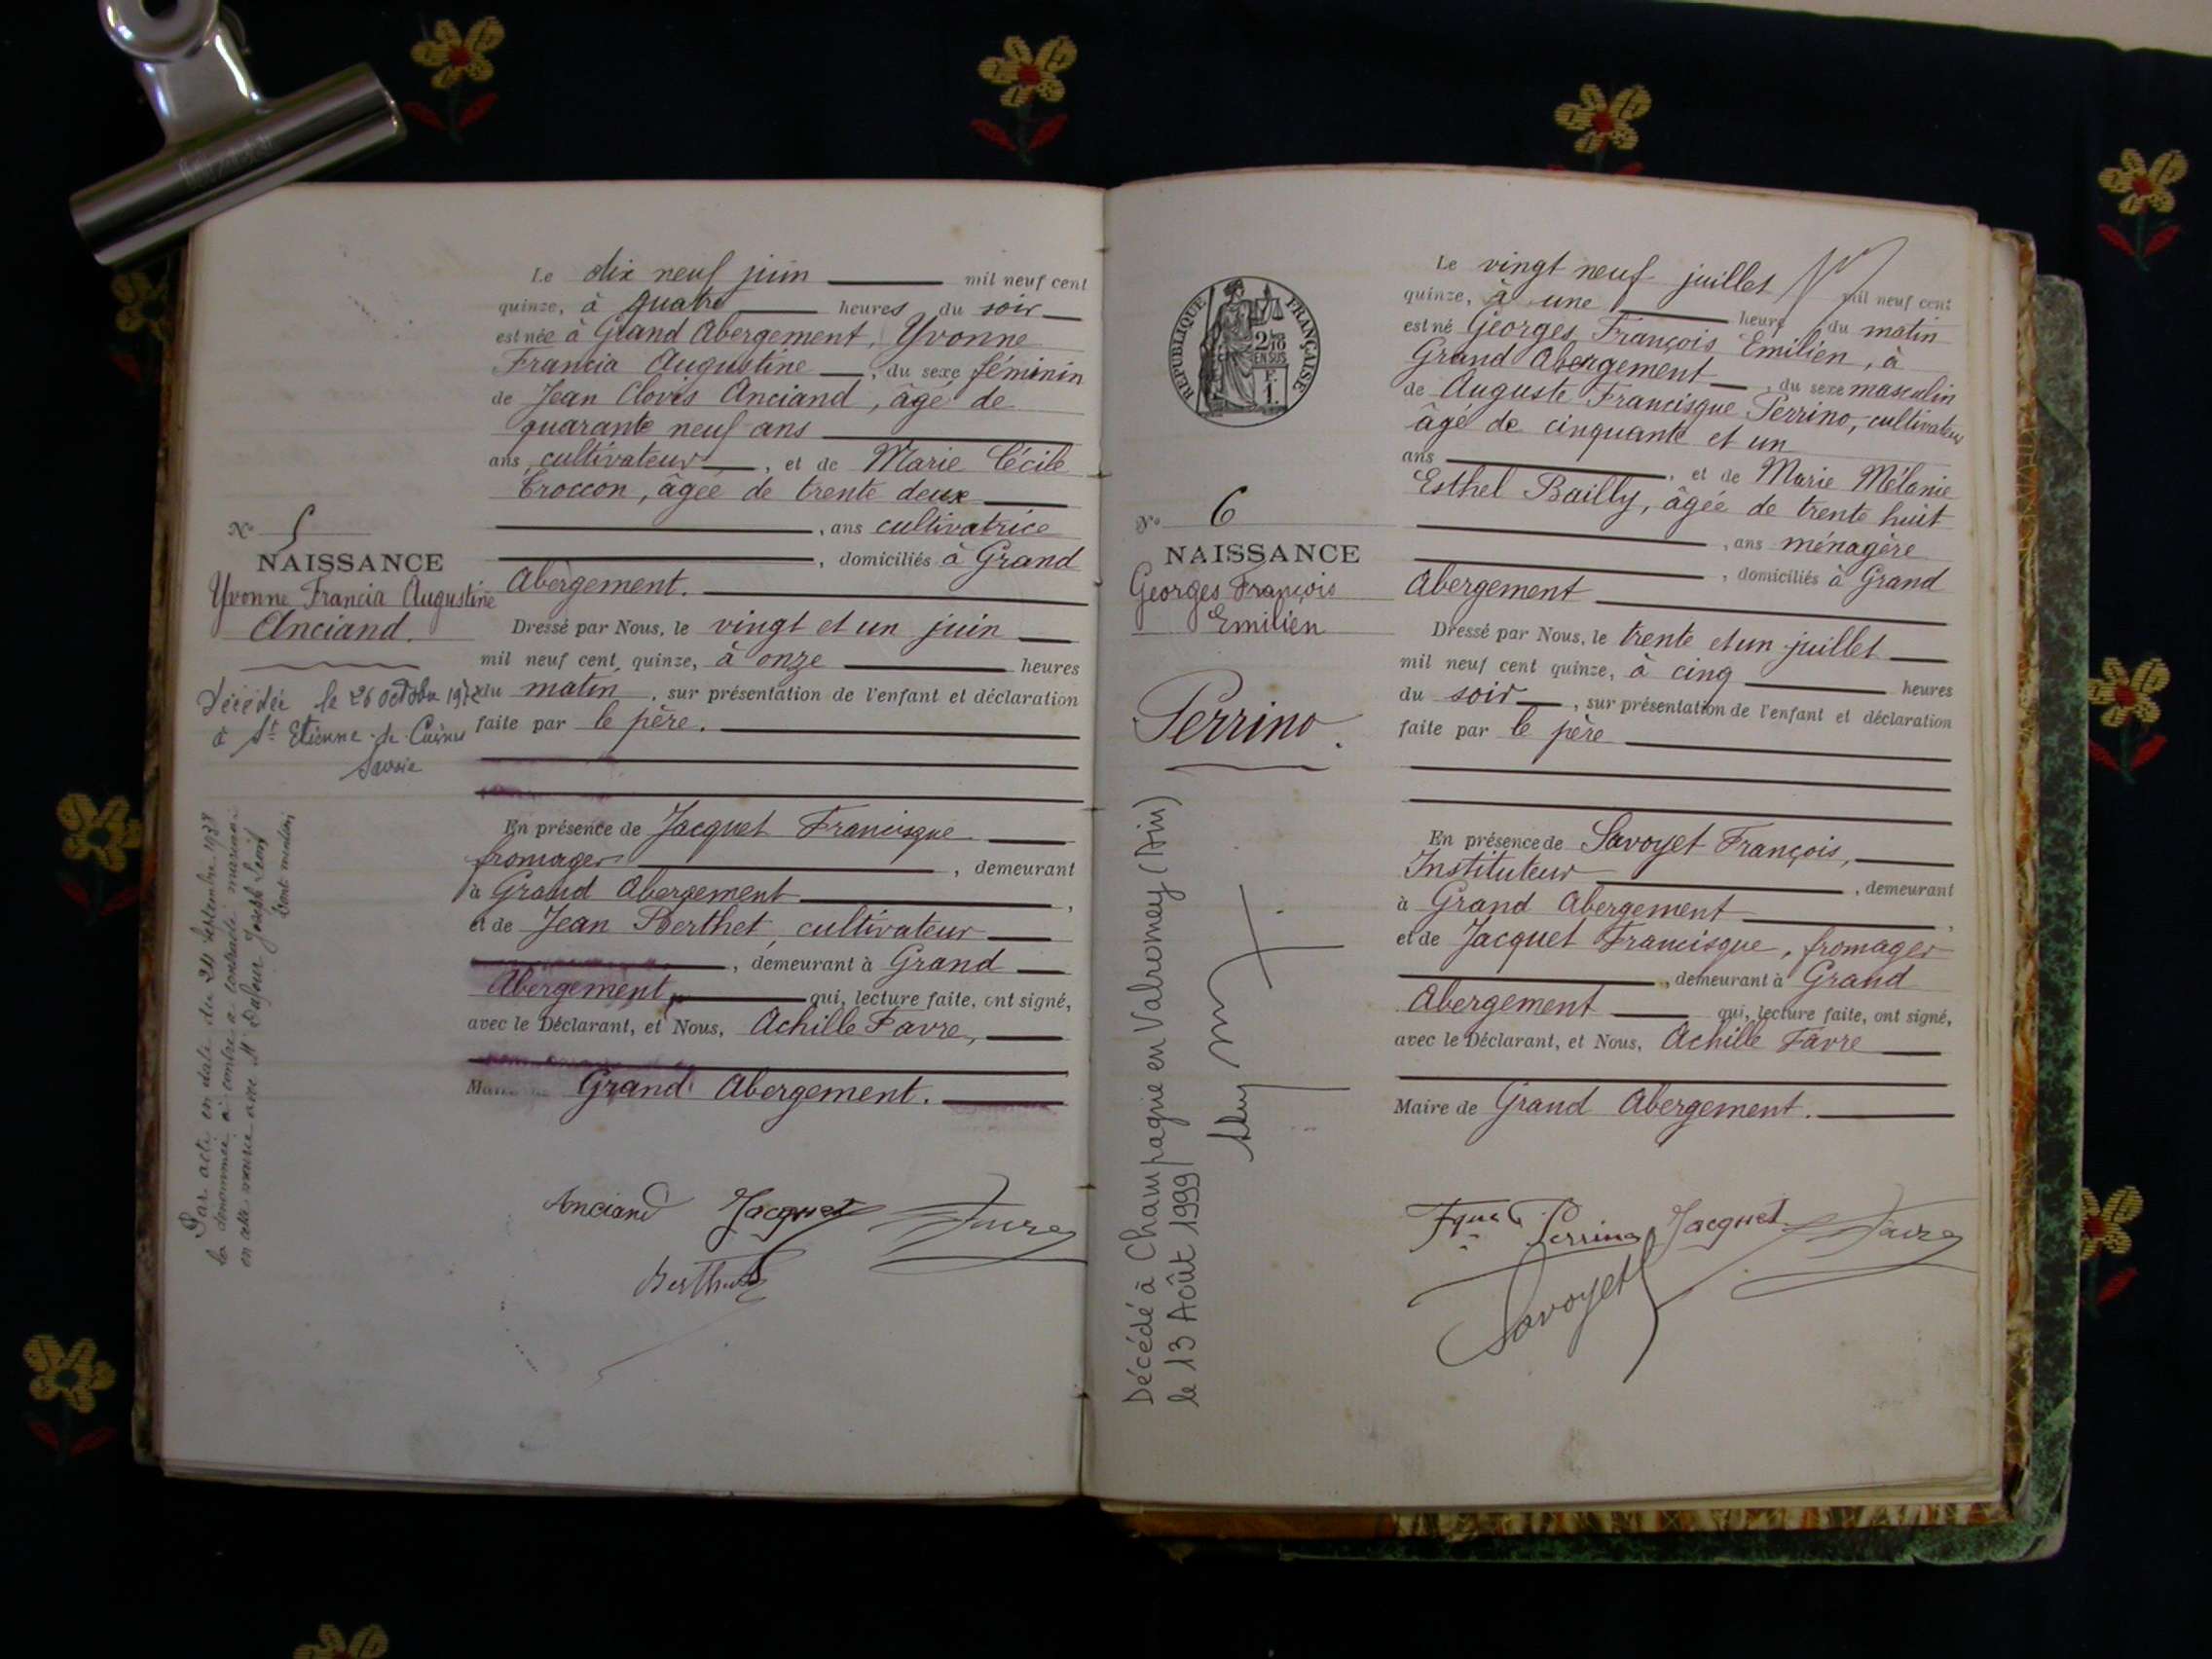 Le dix neuf juin mil neuf cent
quinze, à quatre heures du soir
est née à Grand Abergement, Yvonne
Francia Augustine, du sexe féminin
de Jean Clovis Anciand, âgé de
quarante neuf ans
ans cultivateur, et de Marie Cécile
Troccon, âgée de trente deux
, ans cultivatrice
, domiciliés à Grand
Abergement.
N° 5
NAISSANCE
Yvonne Francia Augustine
Anciand.
Dressé par Nous, le vingt et un juin
mil neuf cent quinze, à onze heures
du matin, sur présentation de l'enfant et déclaration
faite par le père.
Décédée le 26 octobre
à St Etienne-de-Cuines
Savoie
En présence de Jacquet Francisque
fromager, demeurant
à Grand Abergement,
et de Jean Berthet, cultivateur
, demeurant à Grand
Abergement, qui, lecture faite, ont signé,
avec le Déclarant, et Nous, Achille Favre,
Grand Abergement.
Par acte en date du septembre
la dénommée a contracté mariage
en cette mairie avec Mr Joseph
Dont mention
Anciand Jacquet Favre
Berthet
REPUBLIQUE FRANÇAISE
2/10
EN SUS
1F
Le vingt neuf juillet mil neuf cent
quinze, à une heure du matin
est né Georges François Emilien, à
Grand Abergement, du sexe masculin
de Auguste Francisque Perrino, cultivateur
âgé de cinquante et un
ans, et de Marie Mélanie
Esthel Bailly, âgée de trente huit
, ans ménagère
, domiciliés à Grand
Abergement
N° 6
NAISSANCE
Georges François
Emilien
Perrino.
Dressé par Nous, le trente et un juillet
mil neuf cent quinze, à cinq heures
du soir, sur présentation de l'enfant et déclaration
faite par le père
En présence de Savoyet François,
Instituteur, demeurant
à Grand Abergement,
et de Jacquet Francisque, fromager
, demeurant à Grand
Abergement qui, lecture faite, ont signé,
avec le Déclarant, et Nous, Achille Favre
Maire de Grand Abergement.
Décédé à Champagne en Valromey (Ain)
le 13 Août 1999
Perrino Jacquet Favre
Savoyet